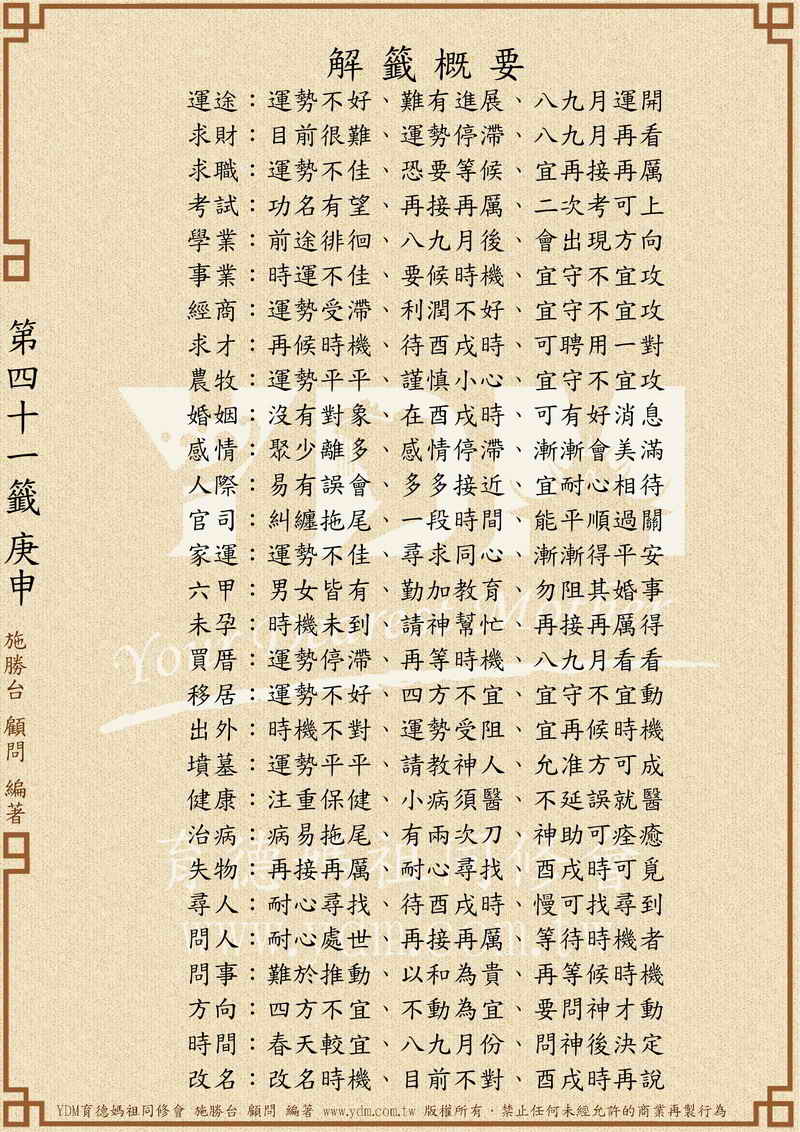 解籤概要
運途：運勢不好、難有進展、八九月運開
求財：目前很難、運勢停滯、八九月再看
求職：運勢不佳、恐要等候、宜再接再厲
考試：功名有望、再接再厲、二次考可上
學業：前途徘徊、八九月後、會出現方向
事業：時運不佳、要候時機、宜守不宜攻
經商：運勢受滯、利潤不好、宜守不宜攻
求才：再候時機、待酉戌時、可聘用一對
農牧：運勢平平、謹慎小心、宜守不宜攻
婚姻：沒有對象、在酉戌時、可有好消息
感情：聚少離多、感情停滯、漸漸會美滿
人際：易有誤會、多多接近、宜耐心相待
官司：糾纏拖尾、一段時間、能平順過關
家運：運勢不佳、尋求同心、漸漸得平安
六甲：男女皆有、勤加教育、勿阻其婚事
未孕：時機未到、請神幫忙、再接再厲得
買厝：運勢停滯、再等時機、八九月看看
移居：運勢不好、四方不宜、宜守不宜動
出外：時機不對、運勢受阻、宜再候時機
墳墓：運勢平平、請教神人、允准方可成
健康：注重保健、小病須醫、不延誤就醫
治病：病易拖尾、有兩次刀、神助可痊癒
失物：再接再厲、耐心尋找、酉戌時可覓
尋人：耐心尋找、待酉戌時、慢可找尋到
問人：耐心處世、再接再厲、等待時機者
問事：難於推動、以和為貴、再等候時機
方向：四方不宜、不動為宜、要問神才動
時間：春天較宜、八九月份、問神後決定
改名：改名時機、目前不對、酉戌時再說
第四十一籤 庚申
施勝台 顧問 編著
YDM
Your Dearest Mother
育德媽祖同修會
www.ydm.com.tw
YDM育德媽祖同修會 施勝台 顧問 編著 www.ydm.com.tw 版權所有．禁止任何未經允許的商業再製行為